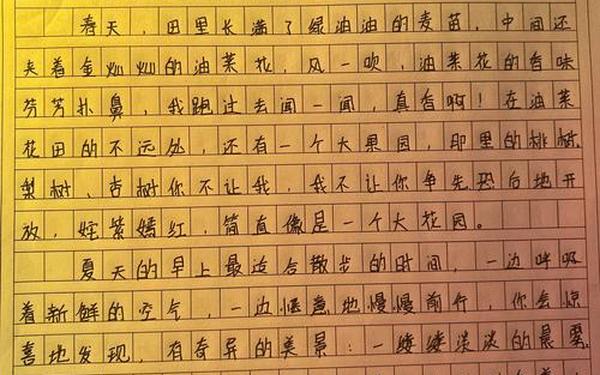 春天，田里长满了绿油油的麦苗，中间还
夹着金灿灿的油菜花，风一吹，油菜花的香味
芬芳扑鼻，我跑过去闻一闻，真香啊！在油菜
花田的不远处，还有一个大果园，那里的桃树、
梨树、杏树你不让我，我不让你争先恐后地开
放，姹紫嫣红，简直像是一个大花园。
夏天的早上最适合散步的时间，一边呼吸
着新鲜的空气，一边惬意地慢慢前行，你会惊
喜地发现，有奇异的美景：一缕缕淡淡的晨雾